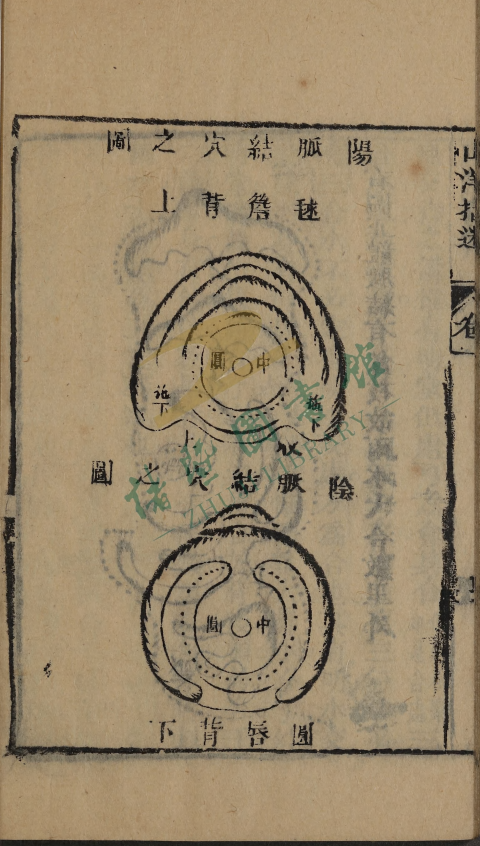 山洋指迷
卷
陽脈結穴之圖
毬簷背上
中圓
陰脈結穴之圖
中圓
圓唇背下
楮藝圖書館
LIBRARY